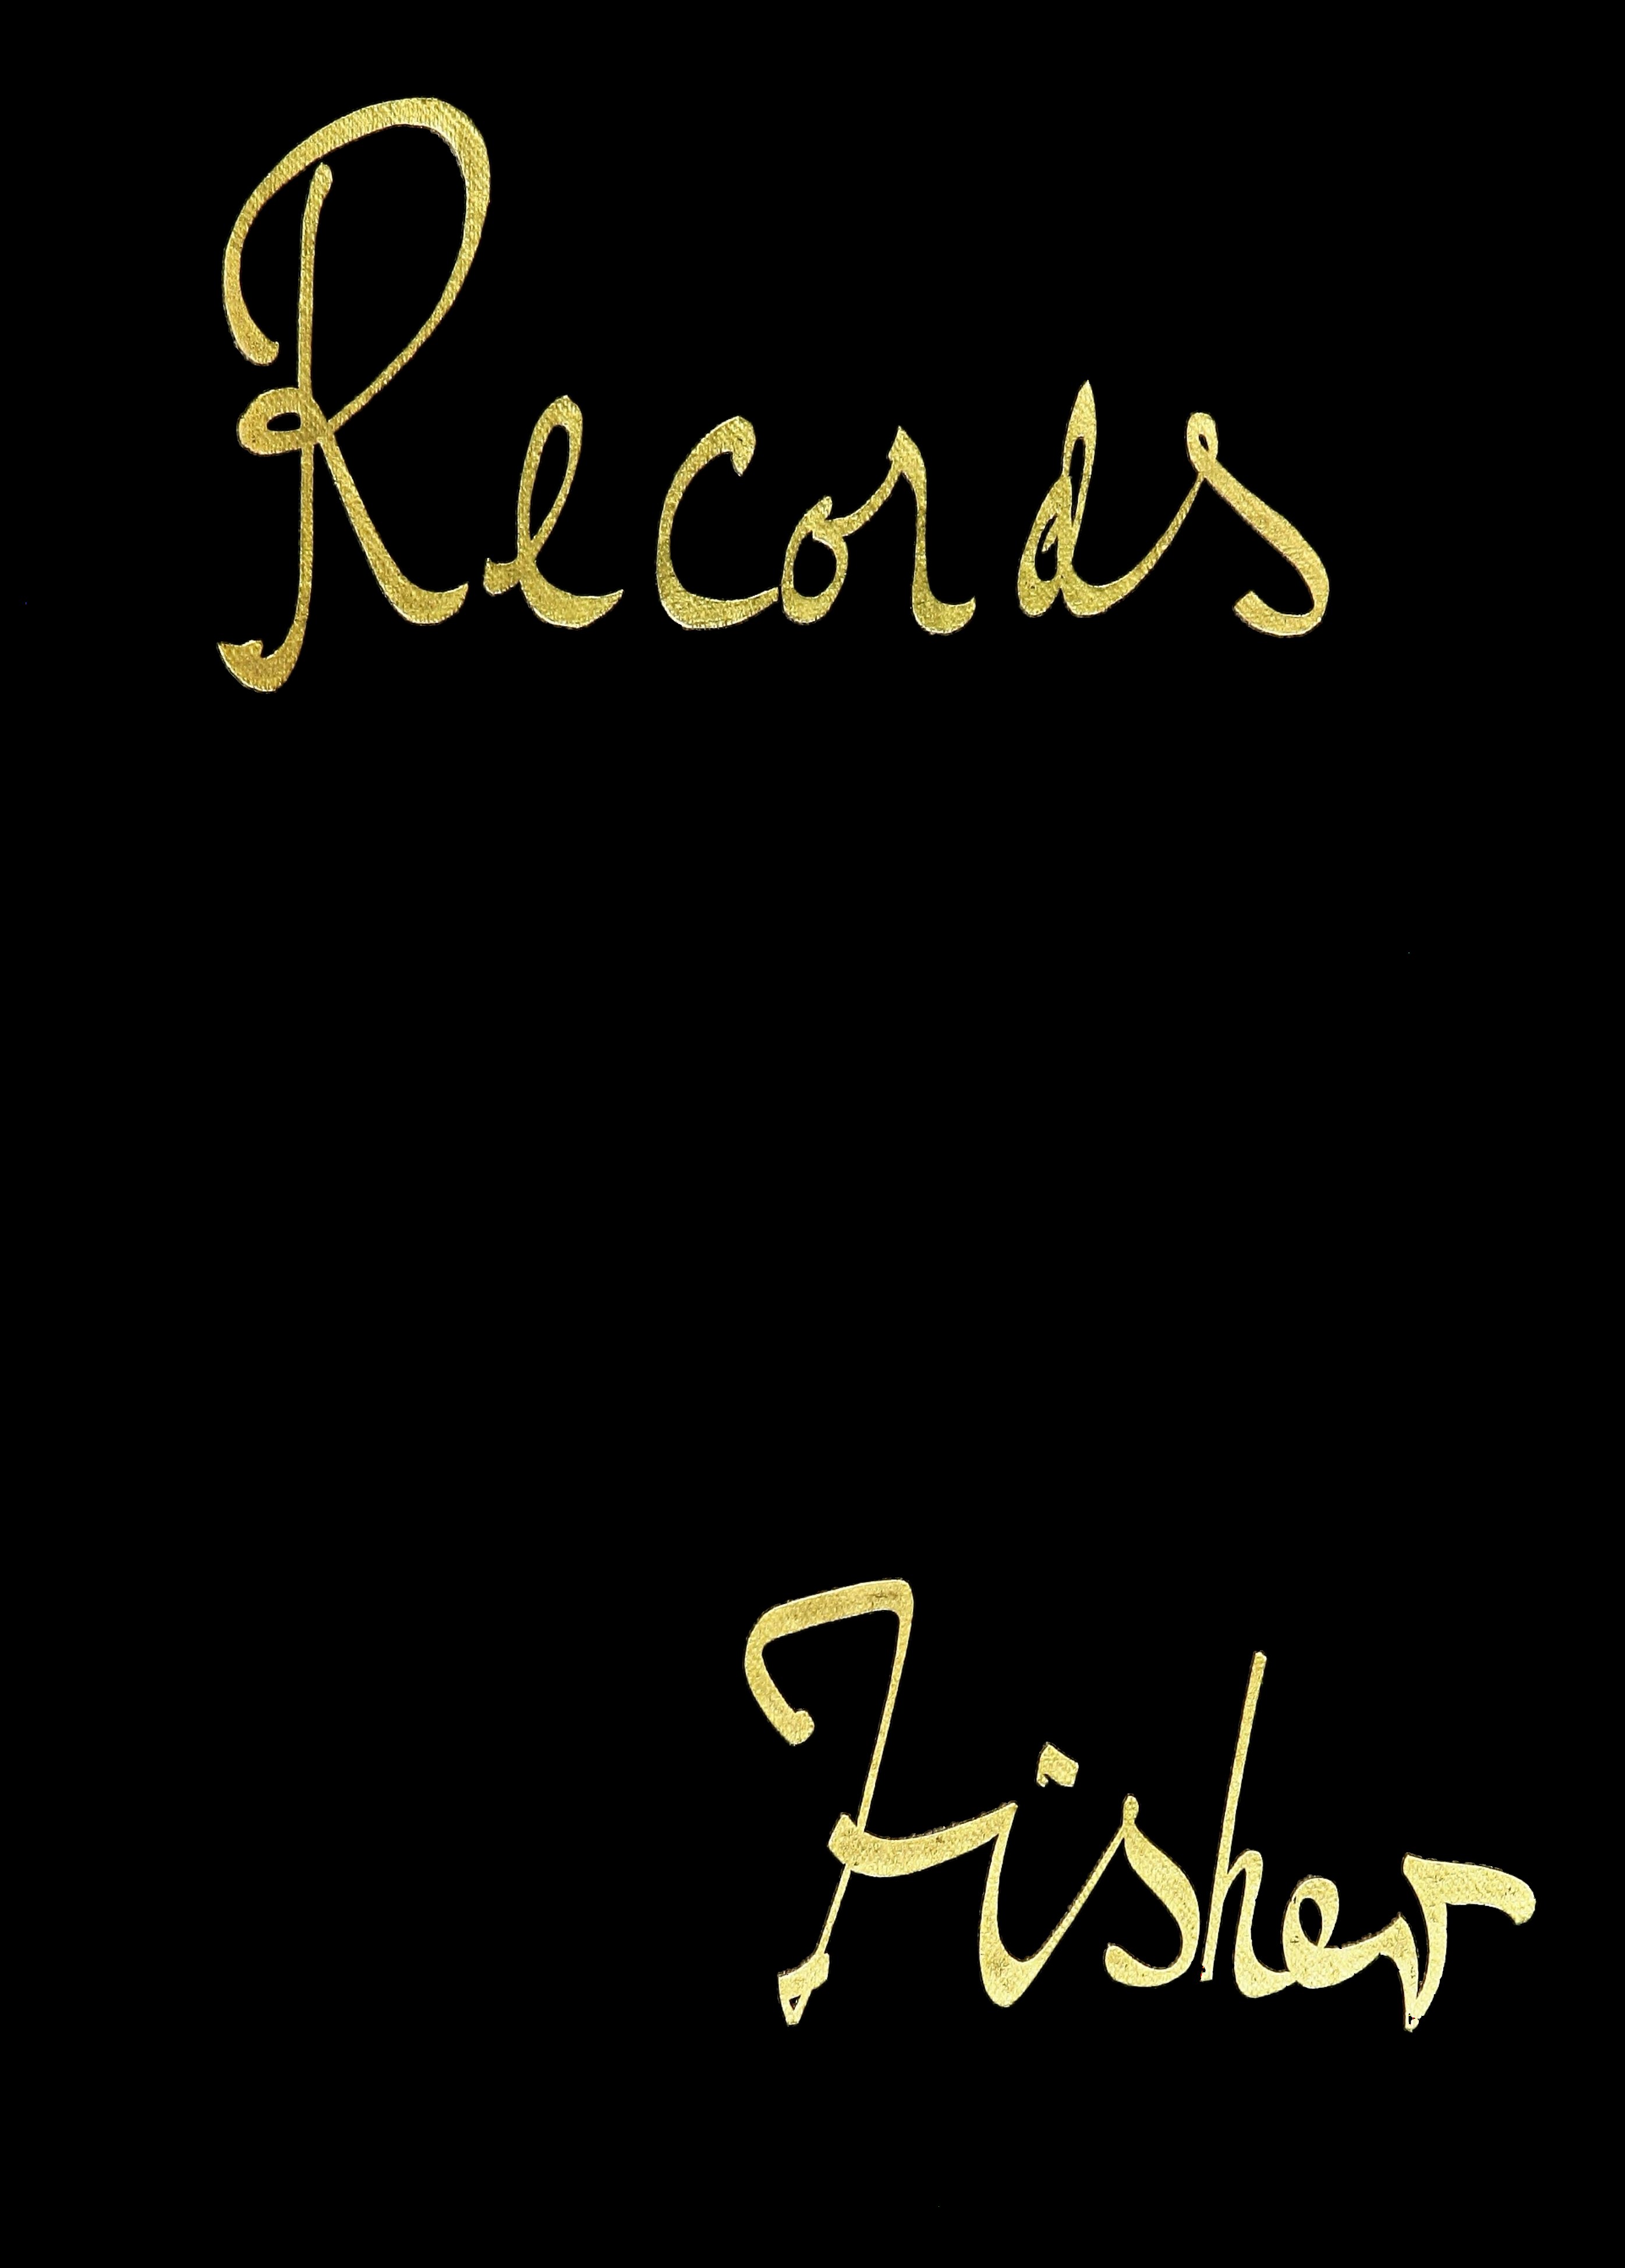 Records
Fisher